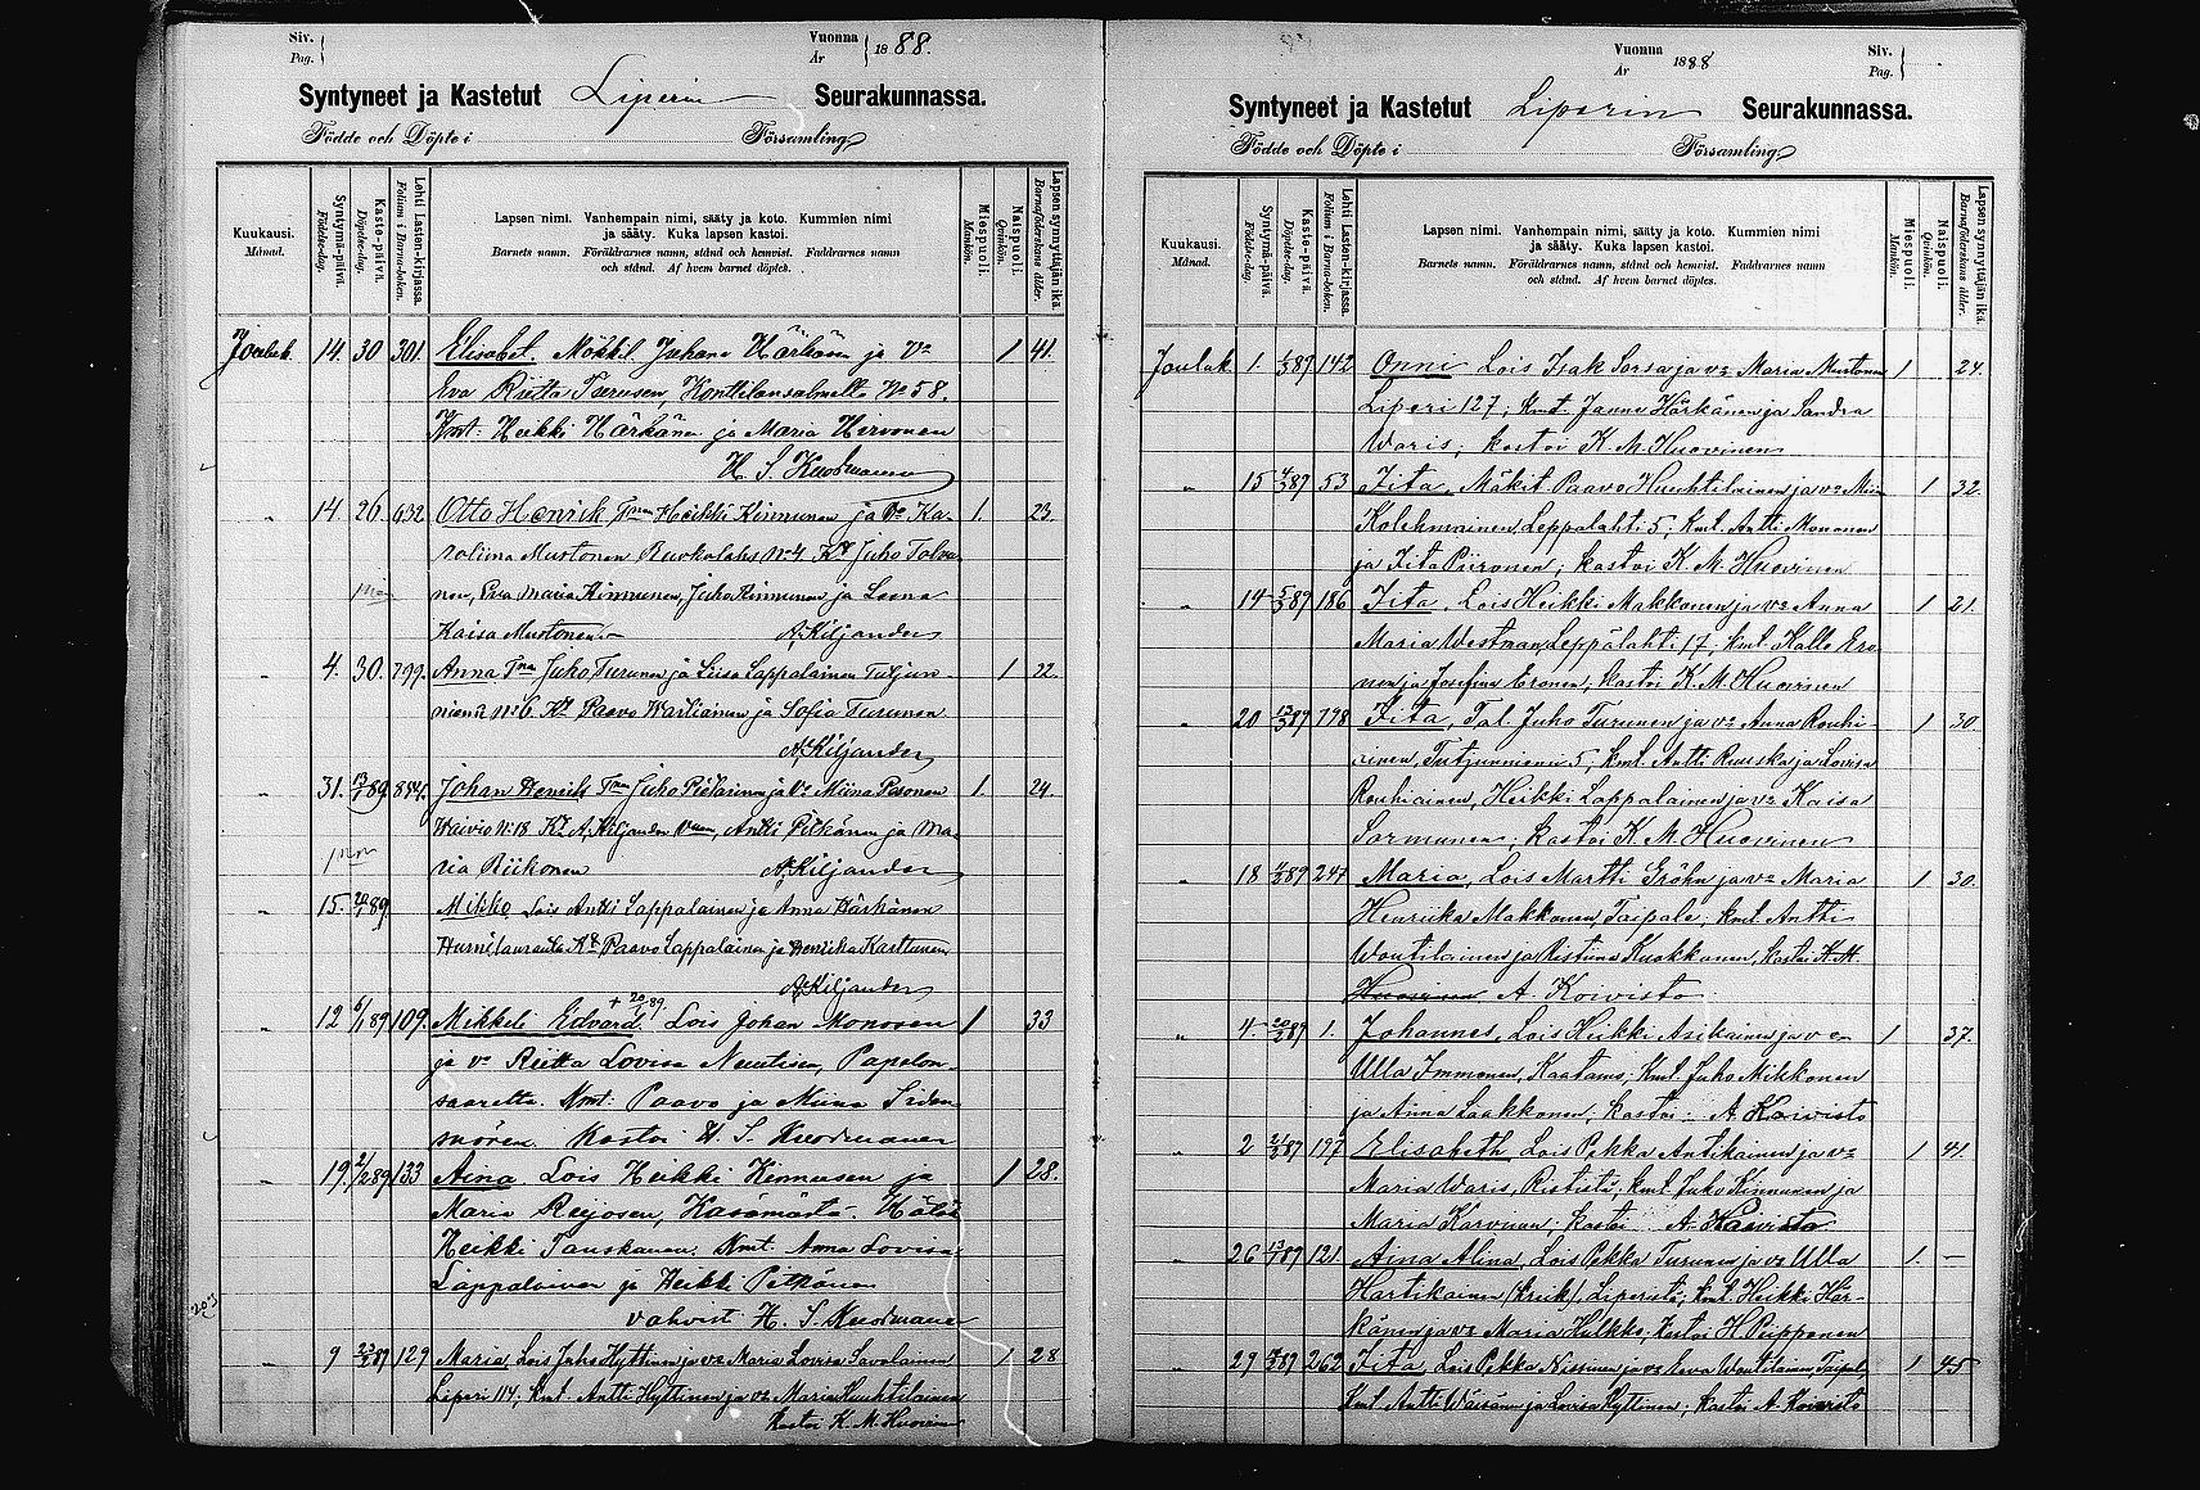 Siv.
Pag.
Vuonna
År
1888.
Syntyneet ja Kastetut Liperin Seurakunnassa.
Födde och Döpte i Församling
Kuukausi.
Månad.
Syntymä-päivä.
Födelse-dag.
Kaste-päivä.
Döpelse-dag.
Lehti Lasten-kirjassa.
Folium i Barna-boken.
Lapsen nimi. Vanhempain nimi, sääty ja koto. Kummien nimi
ja sääty. Kuka lapsen kastoi.
Barnets namn. Föräldrarnes namn, stånd och hemvist. Faddrarnes namn
och stånd. Af hvem barnet döptes.
Miespuoli.
Mankön.
Naispuoli.
Qvinkön.
Lapsen synnyttäjän ikä.
Barnaföderskans ålder.
14. 30 301. Elisabet. Mökkil. Juhana Härkönen ja Vo 1 41.
Eva Riitta Konttilansalmella No 58.
Kmt: Heikki Härkänen ja Maria Hirvonen
H. S.
14. 26. 632 Otto Henrik Heikki Kinnunen ja Vo Ka- 1. 23.
roliina Mustonen No 4. Juho Tolva-
nen, Eva Maria Kinnunen, Juho Kinnunen ja Leena
Kaisa Mustonen. A. Kiljander
4. 30. 799. Anna Juho Turunen ja Liisa Lappalainen Tutjun- 1 22.
niemi No 6. Paavo ja Sofia Turunen.
A. Kiljander
31. 13/1 89. Johan Henrik Juho Pietarinen ja Vo Miina 1. 24.
Waivio No 18 A. Kiljander Antti Pitkänen ja Ma-
ria Riikonen A. Kiljander
15. 89. Mikko Lois Antti Lappalainen ja Anna Härkänen
Paavo Lappalainen ja Henrika Karttunen
A. Kiljander
12 6/1 89 109. Mikkeli Edvard. Lois Johan Monosen 1 33
ja vo Riitta Lovisa Nuutisen, Papelon-
saarelta. Kmt: Paavo ja Miina
Kastoi H. S.
19. 2/2 89 133 Aina. Lois Heikki Kinnusen ja 1 28.
Maria Reijosen,
Heikki Tanskanen. Kmt. Anna Lovisa
Lappalainen ja Heikki Pitkänen
vahvist. H. S.
9 89 129 Maria, Lois Juho Hyttinen ja vo Maria Lovisa Savolainen 1 28
Liperi 114; Kmt. Antti Hyttinen ja vo Maria Huuhtilainen
Kastoi K. M. Huovinen
Vuonna
År
1888
Siv.
Pag.
Syntyneet ja Kastetut Liperin Seurakunnassa.
Födde och Döpte i Församling
Kuukausi.
Månad.
Syntymä-päivä.
Födelse-dag.
Kaste-päivä.
Döpelse-dag.
Lehti Lasten-kirjassa.
Folium i Barna-boken.
Lapsen nimi. Vanhempain nimi, sääty ja koto. Kummien nimi
ja sääty. Kuka lapsen kastoi.
Barnets namn. Föräldrarnes namn, stånd och hemvist. Faddrarnes namn
och stånd. Af hvem barnet döptes.
Miespuoli.
Mankön.
Naispuoli.
Qvinkön.
Lapsen synnyttäjän ikä.
Barnaföderskans ålder.
Jouluk 1. 89 142 Onni Lois Isak Sorsa ja vo Maria Mustonen 1 24.
Liperi 127; Kmt. Janne Härkänen ja Sandra
Waris; kastoi K. M. Huovinen
" 15 89 53 Iita, Mäkit Paavo Huuhtilainen ja vo 1 32.
Kolehmainen, Leppälahti 5; kmt. Antti Mononen
ja Iita Piironen; kastoi K. M. Huovinen
" 14 89 186 Iita, Lois Heikki Makkonen ja vo Anna 1 21.
Maria Westman, Leppälahti 17; kmt. Kalle Ero-
nen ja Josefina Eronen; kastoi K. M. Huovinen
" 20 89 798 Iita, Tal. Juho Turunen ja vo Anna Rouhi- 1 30.
ainen, Tutjunniemi 5; kmt. Antti Ruuska ja Lovisa
Rouhiainen, Heikki Lappalainen ja vo Kaisa
Sormunen; kastoi K. M. Huovinen
" 18 89 247 Maria, Lois Martti Gröhn ja vo Maria 1 30.
Henriika Makkonen, Taipale; kmt. Antti
Woutilainen ja Ristiina Kuokkanen, kastoi K. M.
Huovinen A. Koivisto
" 4. 89 1. Johannes, Lois Heikki Asikainen ja vo 1 37.
Ulla Immonen, Kaatamo; kmt. Juho Mikkonen
ja Anna Laakkonen; kastoi A. Koivisto
" 2 89 197 Elisabeth Lois Pekka Antikainen ja vo 1 41.
Maria Waris, Rististä; kmt. Juho Kinnunen ja
Maria Karvinen; kastoi A. Koivisto
" 26 89 121. Aina Alina, Lois Pekka Turunen ja vo Ulla 1. —
Hartikainen (kreik), Liperistä; kmt. Heikki Här-
känen ja vo Maria Hulkko; kastoi H Piipponen
" 29 89 262 Iita, Lois Pekka Nissinen ja vo Eeva Woutilainen, Taipale, 1 45
kmt. Antti Wäisänen ja Lovisa Hyttinen; kastoi A. Koivisto